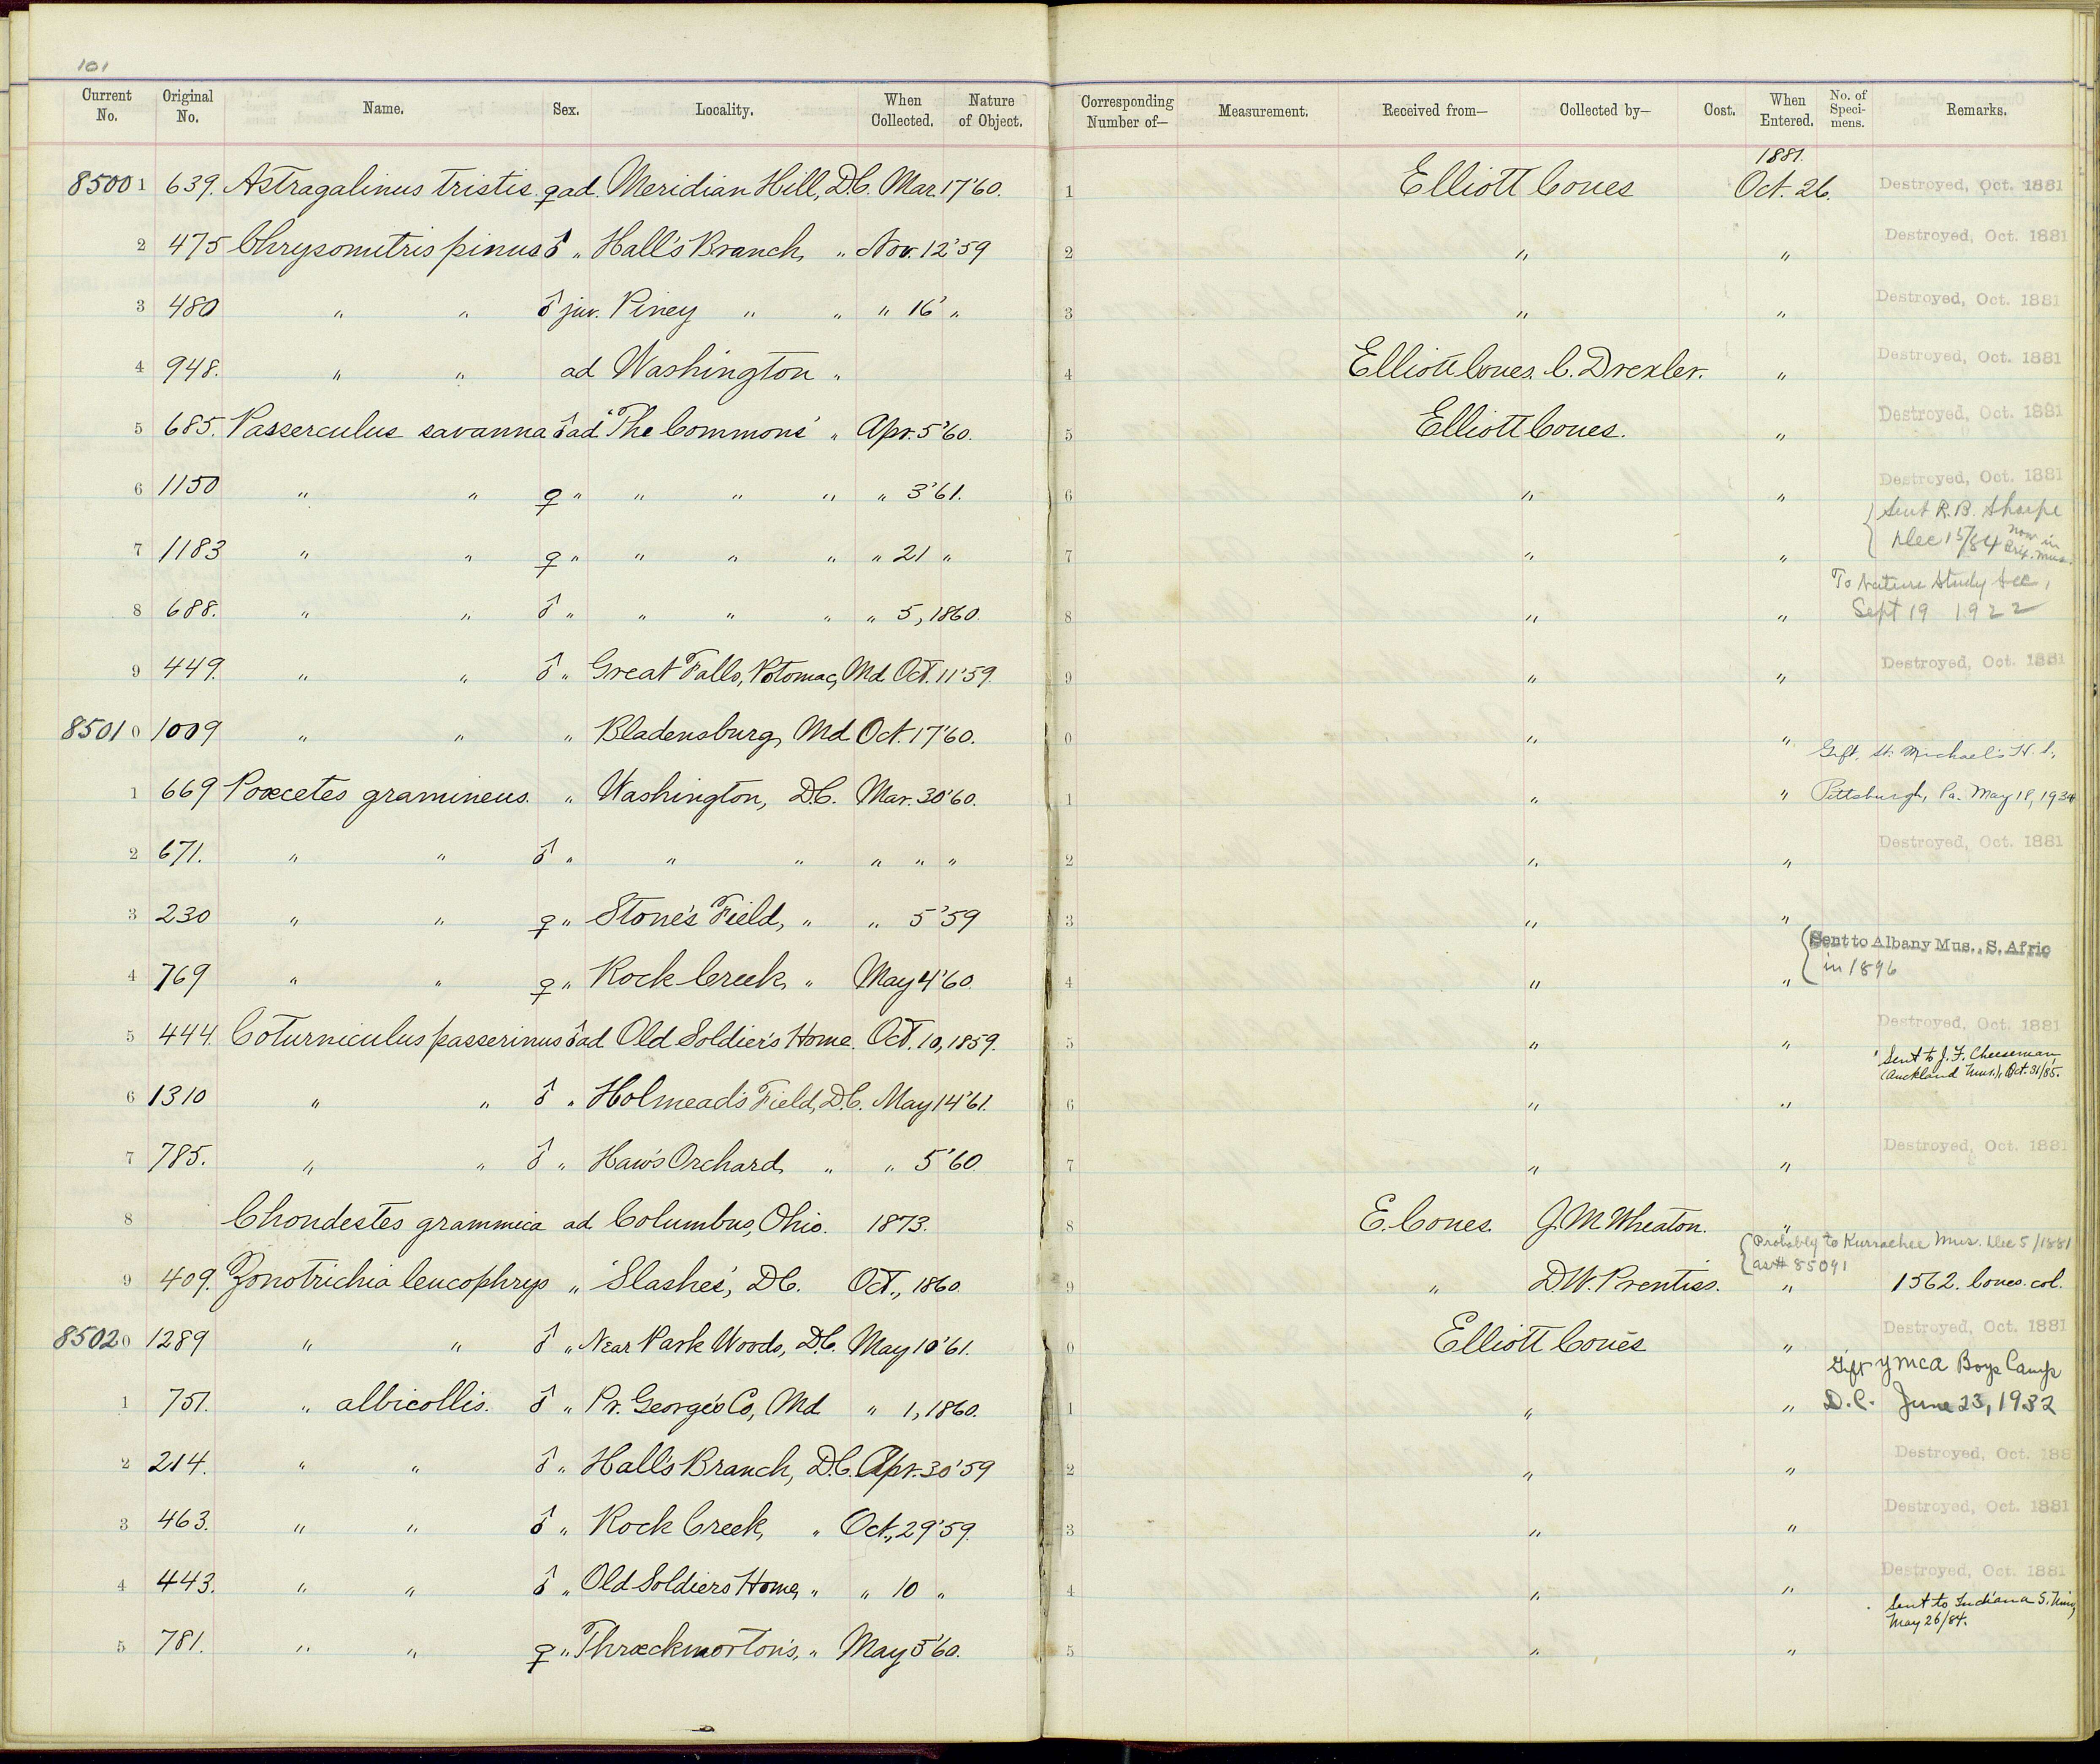 101
Current No. Original No. Name. Sex. Locality. When Collected. Nature of Object. Corresponding Number of— Measurement. Received from— Collected by— Cost. When Entered. No. of Speci-mens. Remarks.
1881.
85001 639. Astragalinus tristis. ♀ ad. Meridian Hill, D.C. Mar. 17'60. 1 Elliott Coues Oct. 26. Destroyed, Oct. 1881
2 475 Chrysomitris pinus ♂ " Hall's Branch, " Nov. 12'59 2 " " Destroyed, Oct. 1881
3 480 " " ♂ juv. Piney " " " 16' " 3 " " Destroyed, Oct. 1881
4 948. " " ad Washington " 4 Elliott Coues. C. Drexler. " Destroyed, Oct. 1881
5 685. Passerculus savanna ♂ ad "The Commons" " Apr. 5'60. 5 Elliott Coues. " Destroyed, Oct. 1881
6 1150 " " ♀ " " " " " 3'61. 6 " " Destroyed, Oct. 1881
7 1183 " " ♀ " " " " " 21 " 7 " " { Sent R. B. Sharpe Dec 15/84 now in Brit. Mus.
8 688. " " ♂ " " " " " 5, 1860. 8 " " To Nature Study Sec, Sept 19 1922
9 449. " " ♂ " Great Falls, Potomac, Md Oct. 11'59. 9 " " Destroyed, Oct. 1881
85010 1009 " " " Bladensburg, Md. Oct. 17'60. 0 " "
1 669 Poœcetes gramineus. " Washington, D.C. Mar. 30'60. 1 " " Gift. St. Michael's H. S., Pittsburgh, Pa. May 18, 1934
2 671. " " ♂ " " " " " " 2 " " Destroyed, Oct. 1881
3 230 " " ♀ " Stone's Field, " " 5'59 3 " "
4 769 " " ♀ " Rock Creek, " May 4'60. 4 " " { Sent to Albany Mus., S. Afric in 1896
5 444. Coturniculus passerinus ♂ ad Old Soldier's Home. Oct. 10, 1859. 5 " " Destroyed, Oct. 1881
6 1310 " " ♂ " Holmead's Field, D.C. May 14'61. 6 " " Sent to J. F. Cheeseman, (Auckland Mus.), Oct. 31/85.
7 785. " " ♂ " Haw's Orchard, " " 5'60. 7 " " Destroyed, Oct. 1881
8 Chondestes grammica ad Columbus, Ohio. 1873. 8 E. Coues. J. M. Wheaton. "
{ Probably to Kurrachee Mus. Dec 5/1881 as # 85091
9 409. Zonotrichia leucophrys " "Slashes", D.C. Oct., 1860. 9 " D. W. Prentiss. " 1562. Coues. col.
85020 1289 " " ♂ " Near Park Woods, D.C. May 10'61. 0 Elliott Coues " Destroyed, Oct. 1881
1 751. " albicollis. ♂ " Pr. George's Co, Md. " 1, 1860. 1 " " Gift YMCA Boys Camp D.C. June 23, 1932
2 214. " " ♂ " Hall's Branch, D.C. Apr. 30'59 2 " " Destroyed, Oct. 188
3 463. " " ♂ " Rock Creek, " Oct., 29'59. 3 " " Destroyed, Oct. 1881
4 443. " " ♂ " Old Soldiers Home, " " 10 " 4 " " Destroyed, Oct. 1881
5 781. " " ♀ " Throckmorton's, " May 5'60. 5 " " Sent to Indiana S. Univ, May 26/84.